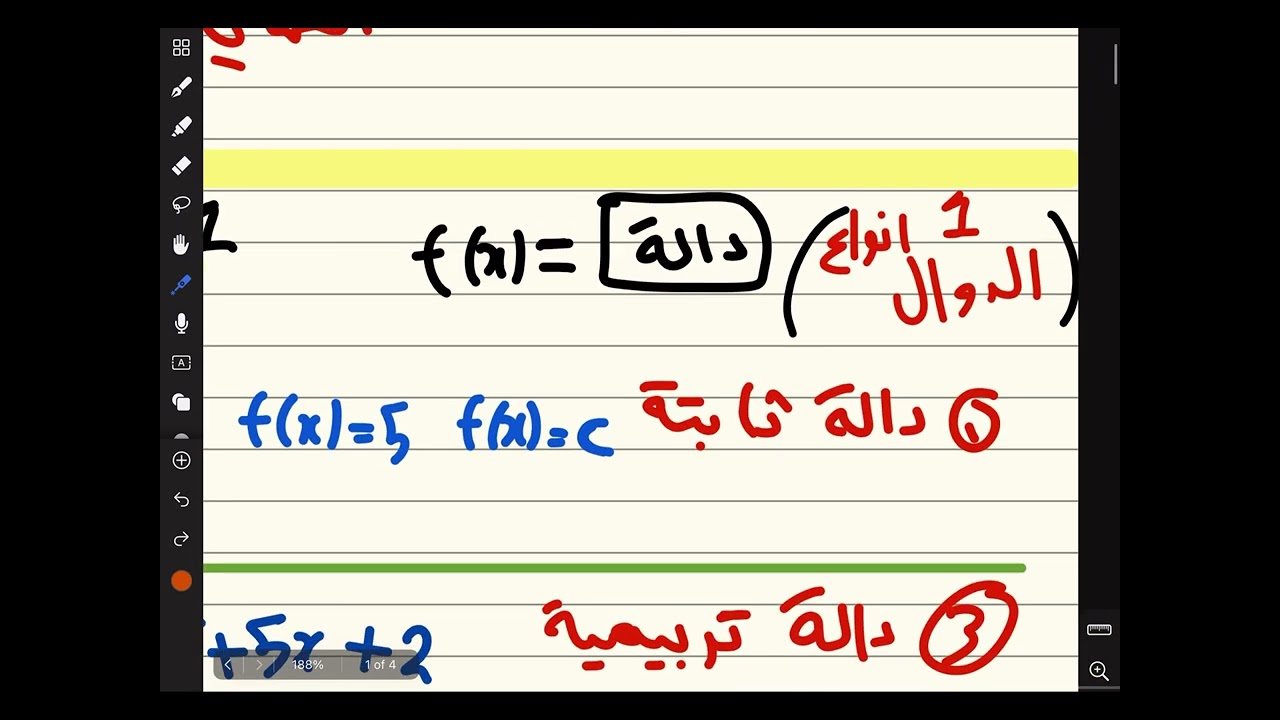 f(x)= دالة (1 انواع
الدوال)
① دالة ثابتة f(x)=c f(x)=5
③ دالة تربيعية +5x+2
188% 1 of 4